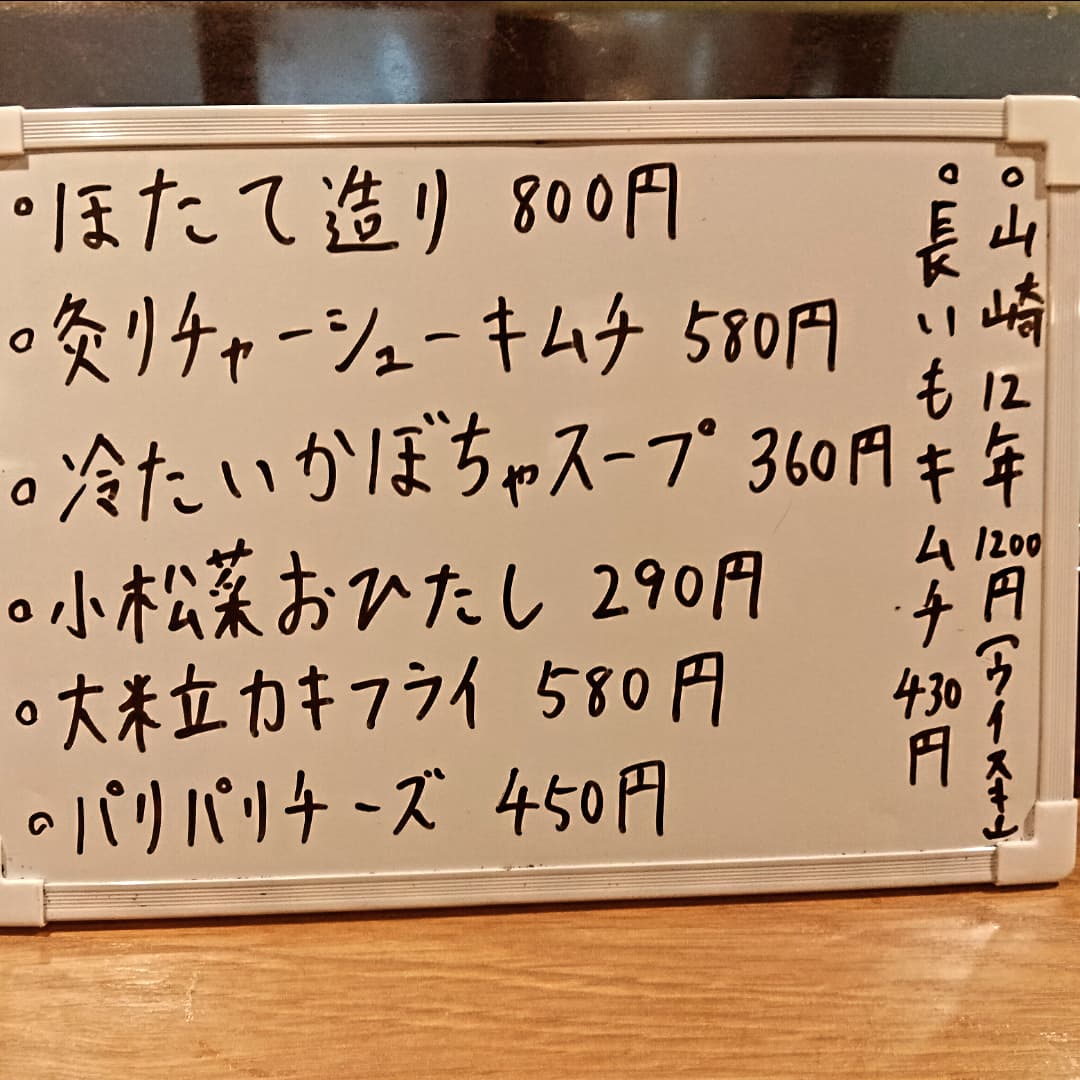 ○ほたて造り 800円
○炙りチャーシューキムチ 580円
○冷たいかぼちゃスープ 360円
○小松菜おひたし 290円
○大粒カキフライ 580円
○パリパリチーズ 450円
○山崎12年 1200円(ウイスキー)
○長いもキムチ 430円